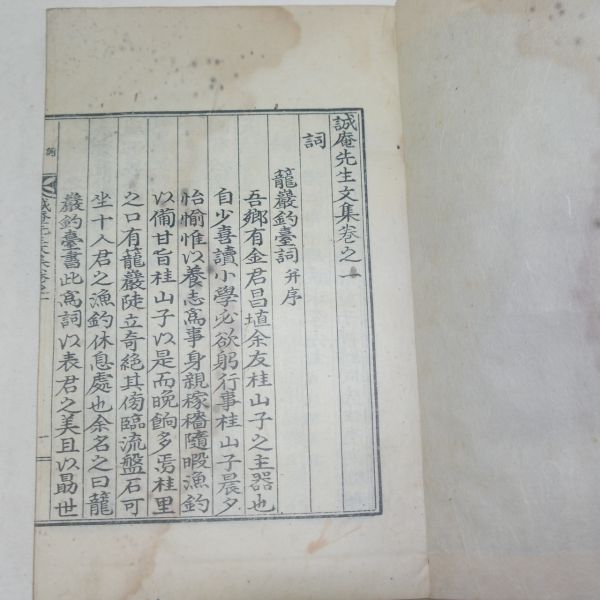 誠庵先生文集卷之一
詞
籠巖釣臺詞 并序
吾鄉有金君昌埴余友桂山子之主器也
自少喜讀小學必欲躬行事桂山子晨夕
怡愉惟以養志爲事身親稼穡隨暇漁釣
以備甘旨桂山子以是而晩餉多焉桂里
之口有籠巖陡立奇絶其傍臨流盤石可
坐十人君之漁釣休息處也余名之曰籠
巖釣臺書此爲詞以表君之美且以勗世
誠庵先生文集卷之一
一